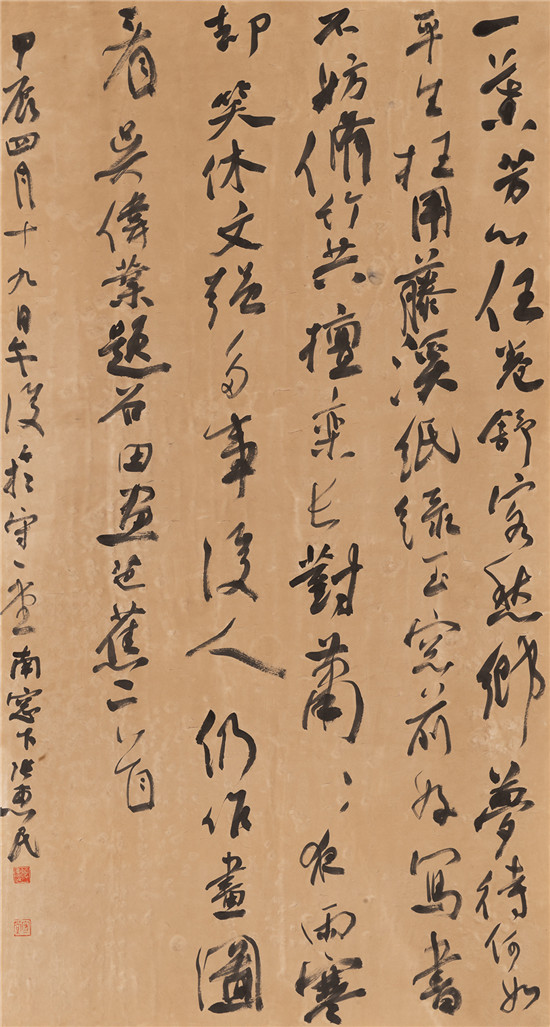 一叶芳心任卷舒客愁鄉夢待何如
平生枉用藤溪紙綠玉窓前好寫書
不妨脩竹共檀欒長對蕭〻夜雨寒
却笑休文强多事後人仍作畫圖
看吳偉業題石田畫芭蕉二首
甲辰四月十九日午後於守一堂南窓下張惠民